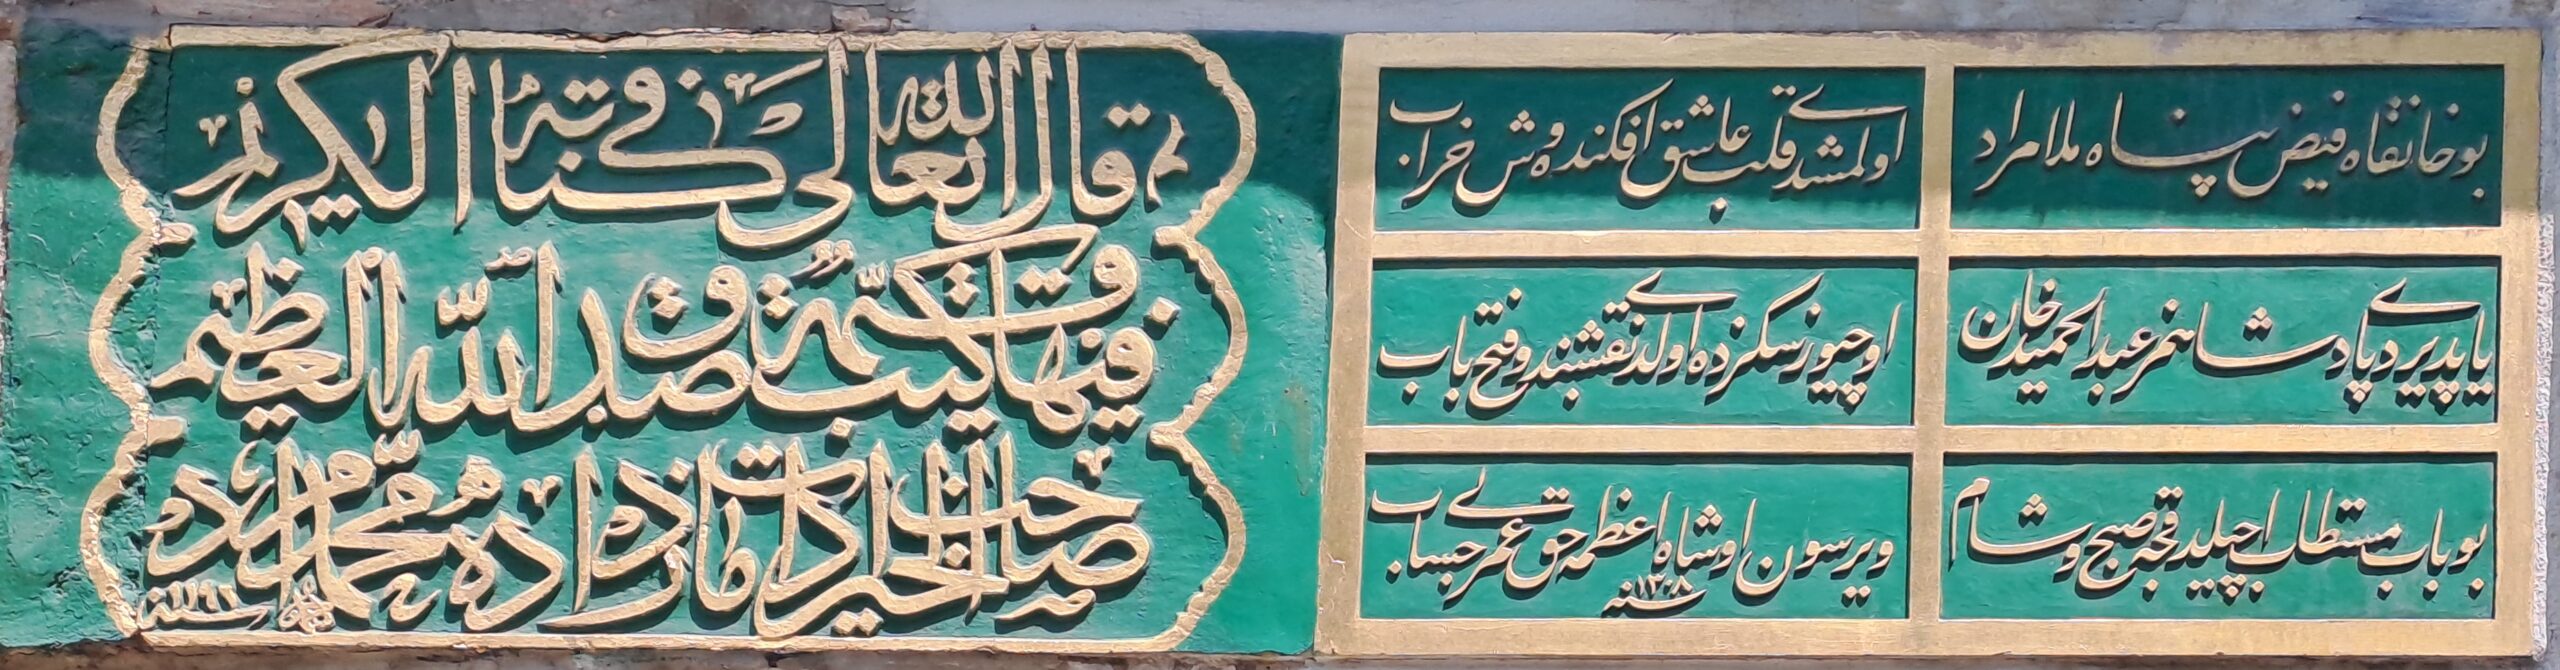 بو خانقاه فیض پناه ملا مراد
اولمشدی قلب عاشق افکنده وش خراب
یاپدیردی پادشاهمز عبد الحمید خان
اوچیوز سکزده اولدی نقشبنده فتح باب
بو باب مستطاب اچیلدقجه صبح و شام
ویرسون او شاه اعظمه حق عمر بی حساب
سنه ١٣٠٨
قال الله تعالى في كتابه الكريم
فيها كتب قيمة صدق الله العظيم
صاحب الخيرات داماد زاده محمد مراد
سنه